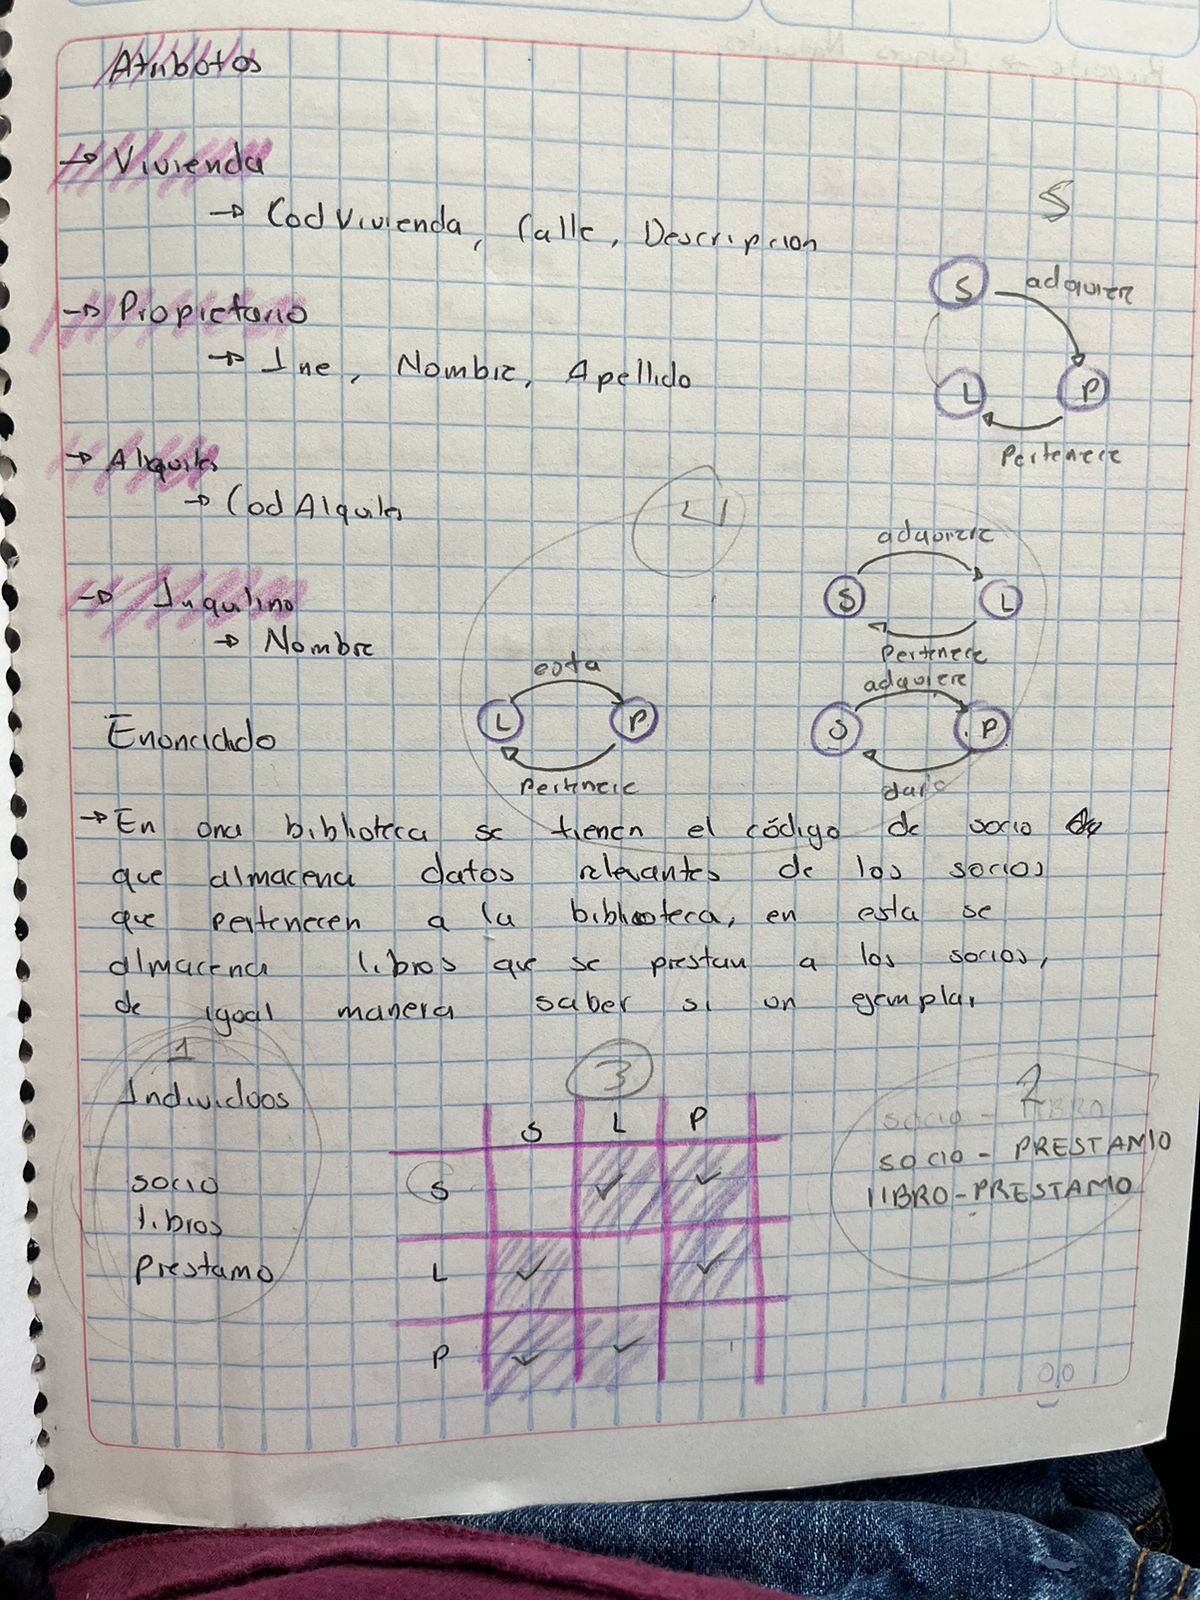 Atributos
→ Vivienda
→ Cod Vivienda, Calle, Descripcion
5
→ Propietario
→ Ine, Nombre, Apellido
S adquiere
L P
Pertenece
→ Alquiler
→ Cod Alquiler
4
adquiere
S L
Pertenece
→ Inquilino
→ Nombre
esta
L P
Pertenece
adquiere
S P
Enunciado
→ En una biblioteca se tienen el código de socio
que almacena datos relevantes de los socios
que pertenecen a la biblioteca, en esta se
almacena libros que se prestan a los socios,
de igual manera saber si un ejemplar
1
Individuos
socio
libros
Prestamo
3
S L P
S ✓ ✓
L ✓ ✓
P ✓ ✓
2
SOCIO - LIBRO
SOCIO - PRESTAMO
LIBRO - PRESTAMO